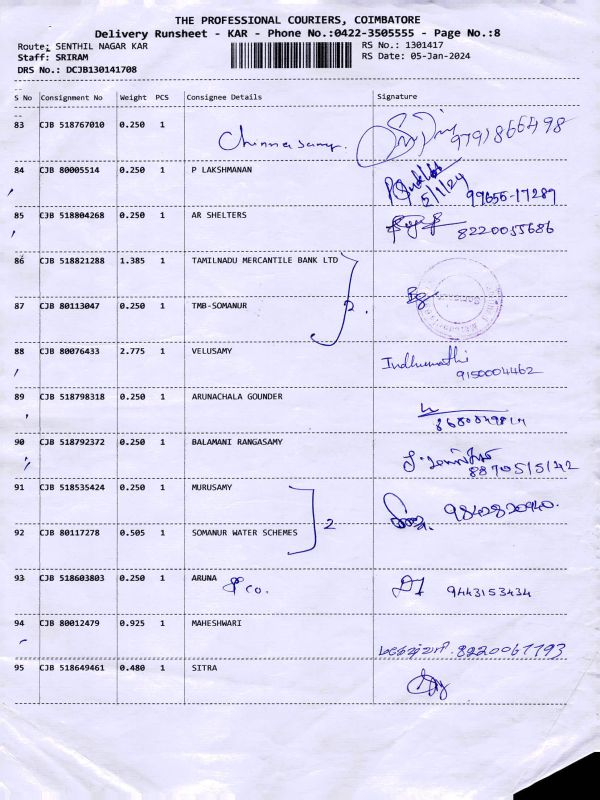 THE PROFESSIONAL COURIERS, COIMBATORE
Delivery Runsheet - KAR - Phone No.:0422-3505555 - Page No.:8
Route: SENTHIL NAGAR KAR RS No.: 1301417
Staff: SRIRAM RS Date: 05-Jan-2024
DRS No.: DCJB130141708
S No Consignment No Weight PCS Consignee Details Signature
83 CJB 518767010 0.250 1
Chinnasamy. 9791866498
84 CJB 80005514 0.250 1 P LAKSHMANAN
5/1/24 99655-17287
85 CJB 518804268 0.250 1 AR SHELTERS
8220055686
86 CJB 518821288 1.385 1 TAMILNADU MERCANTILE BANK LTD
2.
87 CJB 80113047 0.250 1 TMB-SOMANUR
88 CJB 80076433 2.775 1 VELUSAMY
Indhumathi
9150004462
89 CJB 518798318 0.250 1 ARUNACHALA GOUNDER
90 CJB 518792372 0.250 1 BALAMANI RANGASAMY
8870515142
91 CJB 518535424 0.250 1 MURUSAMY
9842820940.
2
92 CJB 80117278 0.505 1 SOMANUR WATER SCHEMES
93 CJB 518603803 0.250 1 ARUNA
& co. 9443153434
94 CJB 80012479 0.925 1 MAHESHWARI
8220067793
95 CJB 518649461 0.480 1 SITRA